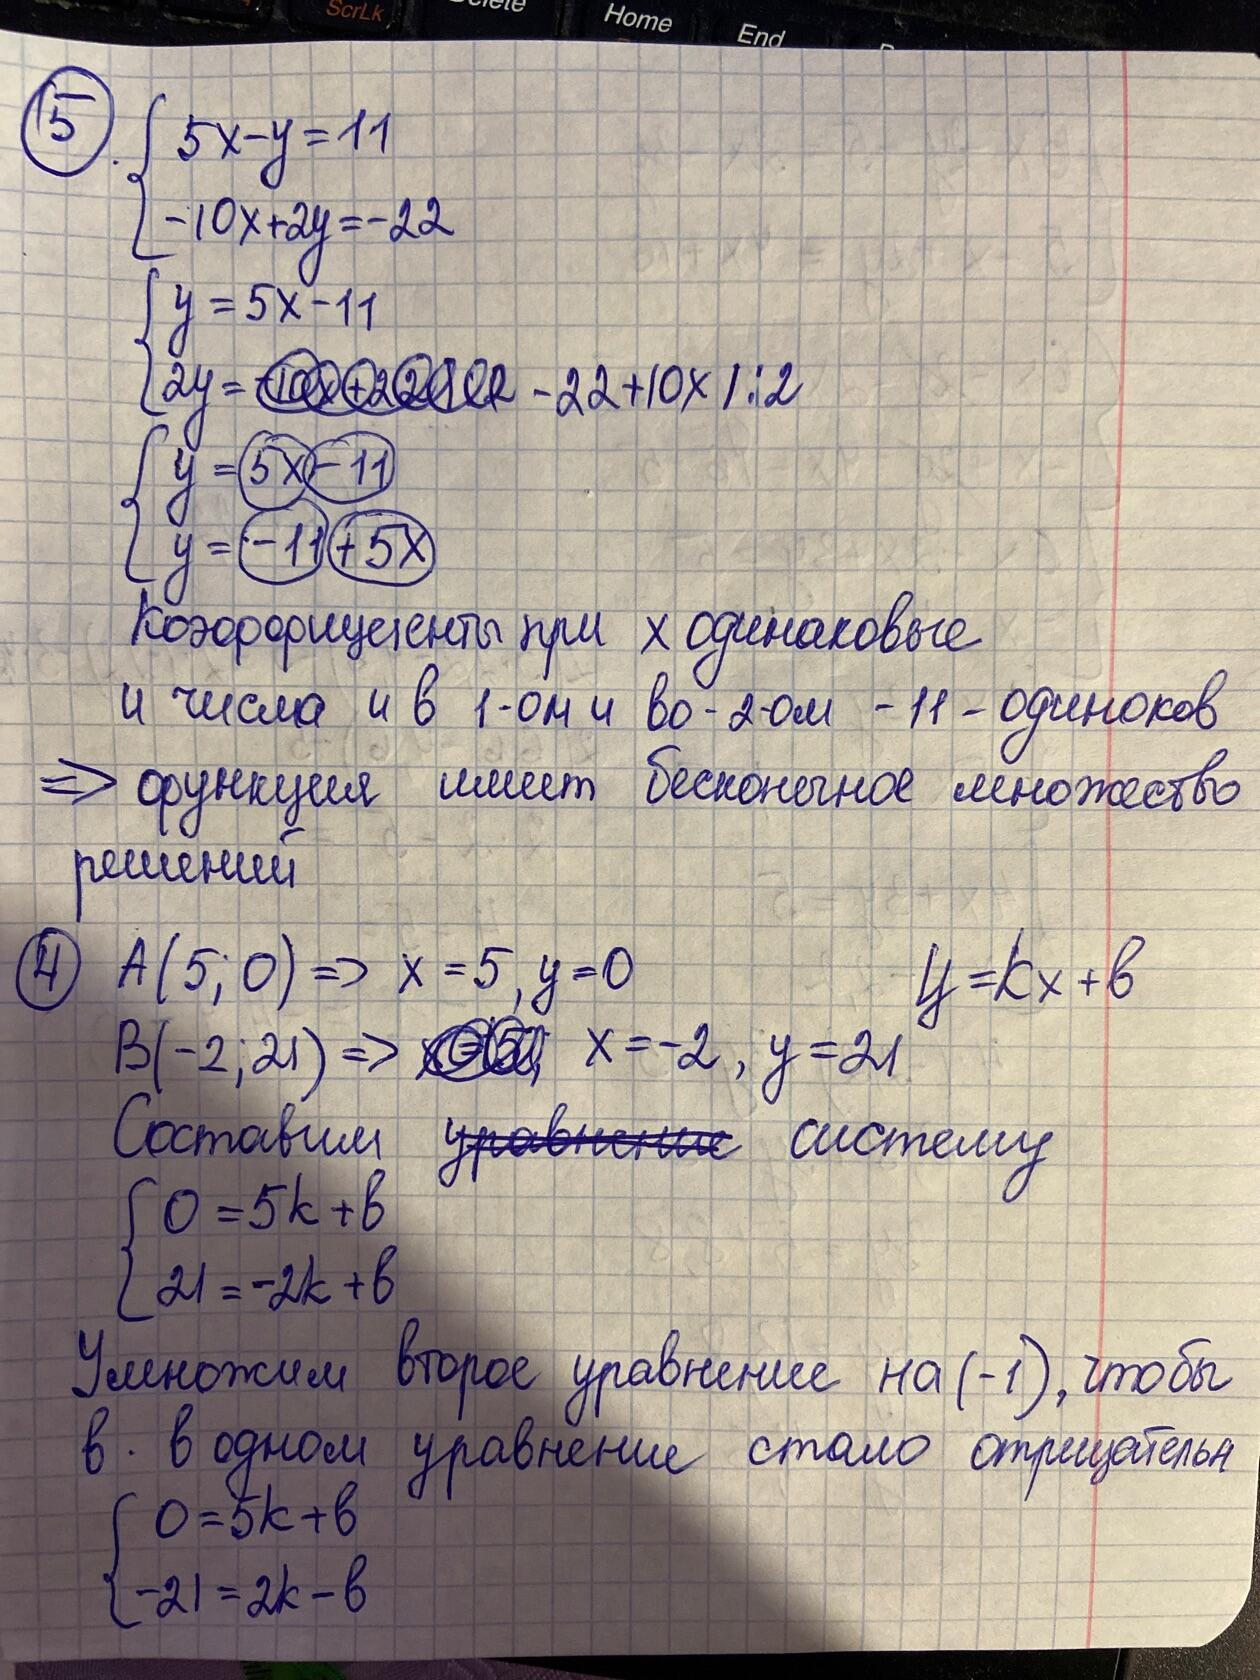 ScrLk
Delete
Home
End
5
5x-y=11
-10x+2y=-22
y=5x-11
2y= -22+10x |:2
y=5x-11
y=-11+5x
Коэффициенты при x одинаковые
и числа и в 1-ом и во-2-ом -11- одиноков
=> функция имеет бесконечное множество
решений
4 A(5;0)=> x=5, y=0 y=kx+b
B(-2;21)=> x=-2, y=21
Составим уравнение систему
0=5k+b
21=-2k+b
Умножим второе уравнение на (-1), чтобы
в. в одном уравнение стало отрицательн
0=5k+b
-21=2k-b